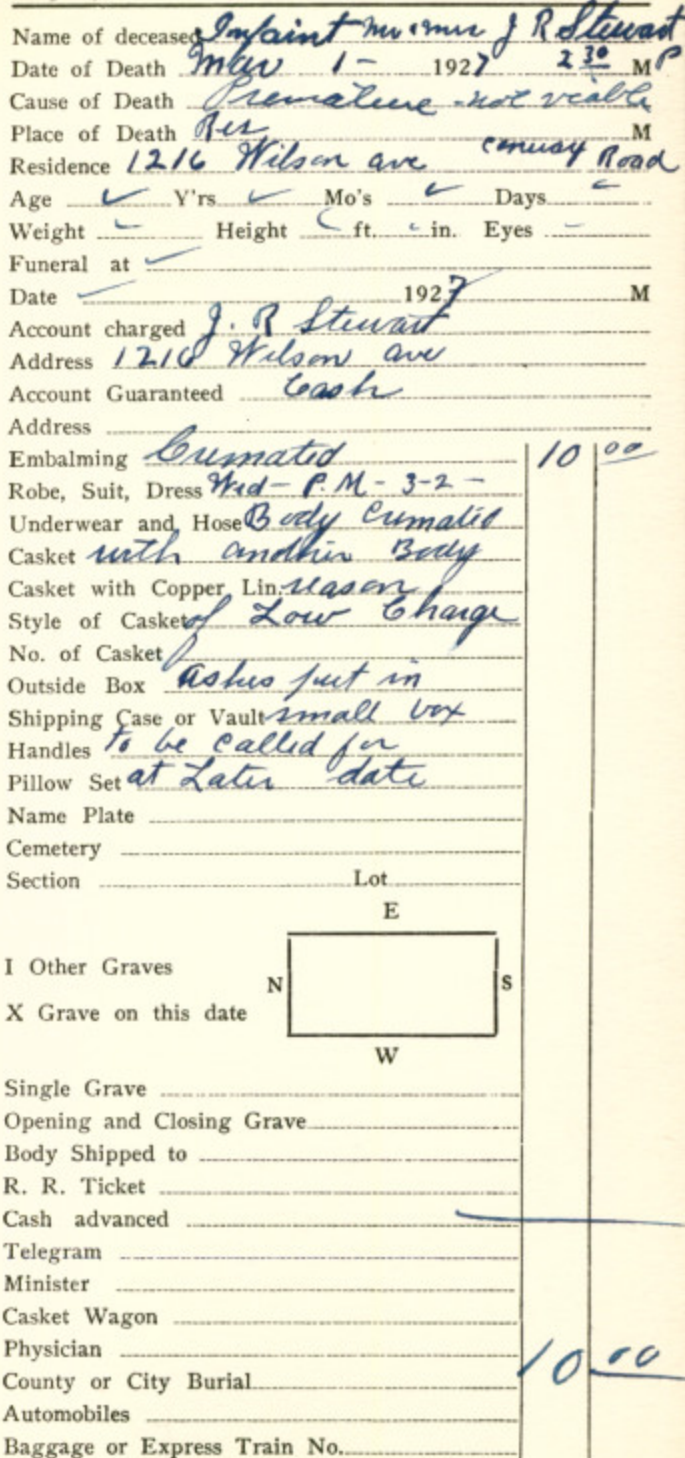 Name of deceased Infaint Mr & Mrs J R Stewart
Date of Death Mar 1- 1927 2 30 M P
Cause of Death Premature - not viable
Place of Death Res M
Residence 1216 Wilson ave Conway Road
Age ✓ Y'rs ✓ Mo's ✓ Days
Weight Height ft. in. Eyes
Funeral at ✓
Date ✓ 1927 M
Account charged J. R Stewart
Address 1216 Wilson ave
Account Guaranteed Cash
Address
Embalming Cremated 10 00
Robe, Suit, Dress Wed- P.M - 3-2 -
Underwear and Hose Body Cremated
Casket with another Body
Casket with Copper Lin. reason
Style of Casket of Low Charge
No. of Casket
Outside Box Ashes put in
Shipping Case or Vault small box
Handles to be called for
Pillow Set at Later date
Name Plate
Cemetery
Section Lot
E
I Other Graves
N S
X Grave on this date
W
Single Grave
Opening and Closing Grave
Body Shipped to
R. R. Ticket
Cash advanced
Telegram
Minister
Casket Wagon
Physician
County or City Burial 10 00
Automobiles
Baggage or Express Train No.